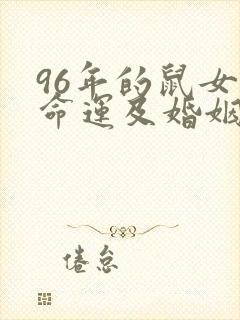 96年的鼠女
命运及婚姻
倦怠